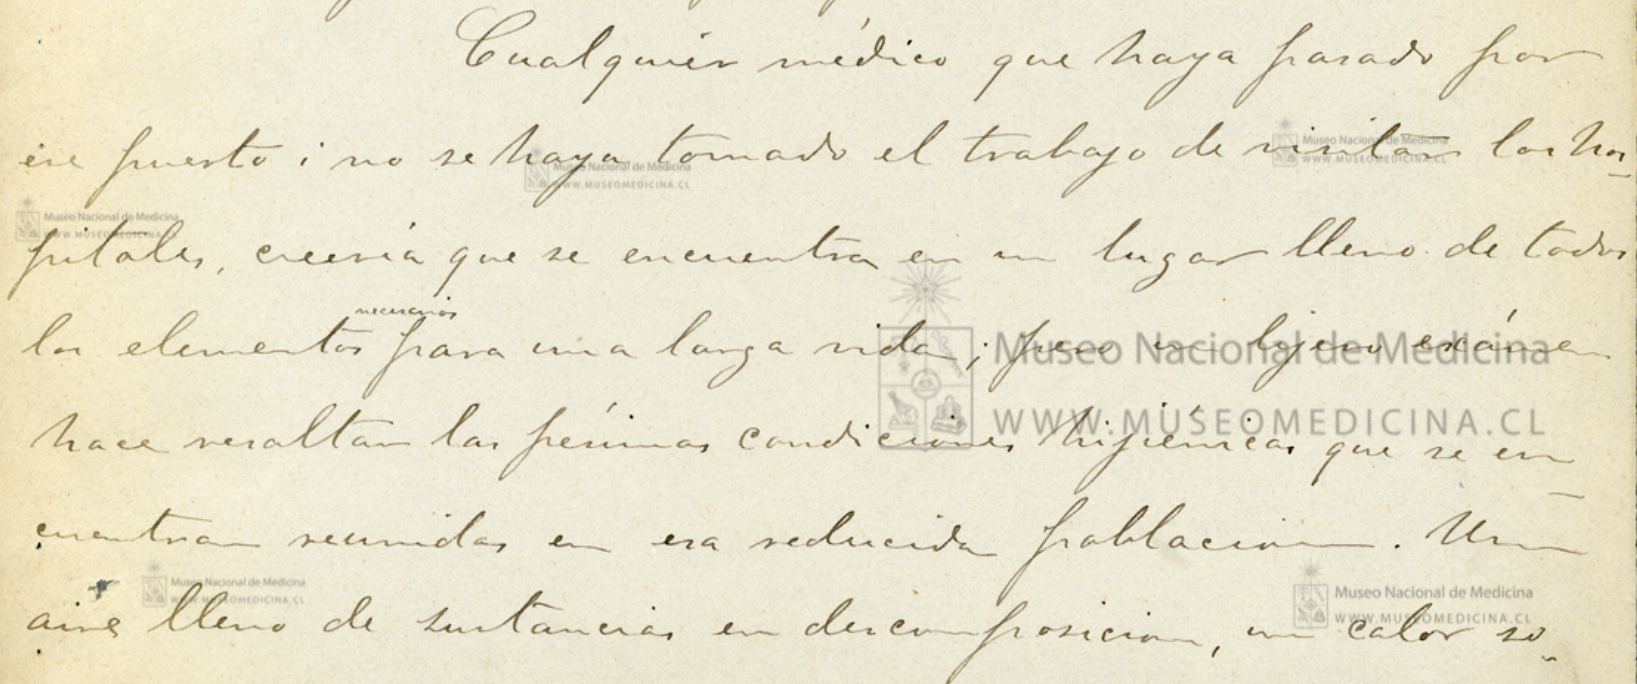 Cualquier médico que haya pasado por
ese puerto i no se haya tomado el trabajo de visitar los hos-
pitales, creería que se encuentra en un lugar lleno de todos
los elementos necesarios para una larga vida; pero un lijero exámen
hace resaltar las pésimas condiciones hijiénicas que se en-
cuentran reunidas en esa reducida poblacion. Un
aire lleno de sustancias en descomposicion, un calor so-
Museo Nacional de Medicina
WWW.MUSEOMEDICINA.CL
Museo Nacional de Medicina
WWW.MUSEOMEDICINA.CL
Museo Nacional de Medicina
WWW.MUSEOMEDICINA.CL
Museo Nacional de Medicina
WWW.MUSEOMEDICINA.CL
Museo Nacional de Medicina
WWW.MUSEOMEDICINA.CL
Museo Nacional de Medicina
WWW.MUSEOMEDICINA.CL